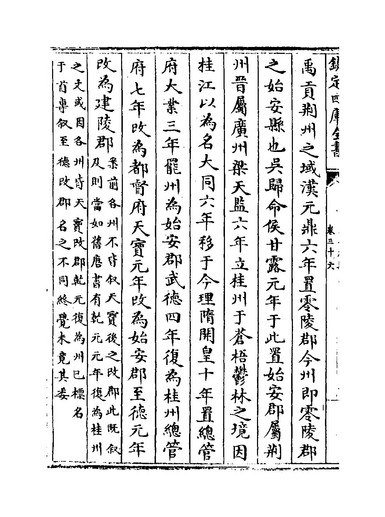 欽定四庫全書
卷三十六
禹貢荆州之域漢元鼎六年置零陵郡今州即零陵郡
之始安縣也吳歸命侯甘露元年于此置始安郡屬荆
州晉屬廣州梁天監六年立桂州于蒼梧鬱林之境因
桂江以為名大同六年移于今理隋開皇十年置總管
府大業三年罷州為始安郡武德四年復為桂州總管
府七年改為都督府天寶元年改為始安郡至德元年
改為建陵郡
案前各州不皆叙天寳後之改郡此既叙
及則當如舊唐書有乾元元年復為桂州
之文或因各州皆天寳改郡乾元復為州已標名
于首専叙至德改郡名之不同終覺未竟其委